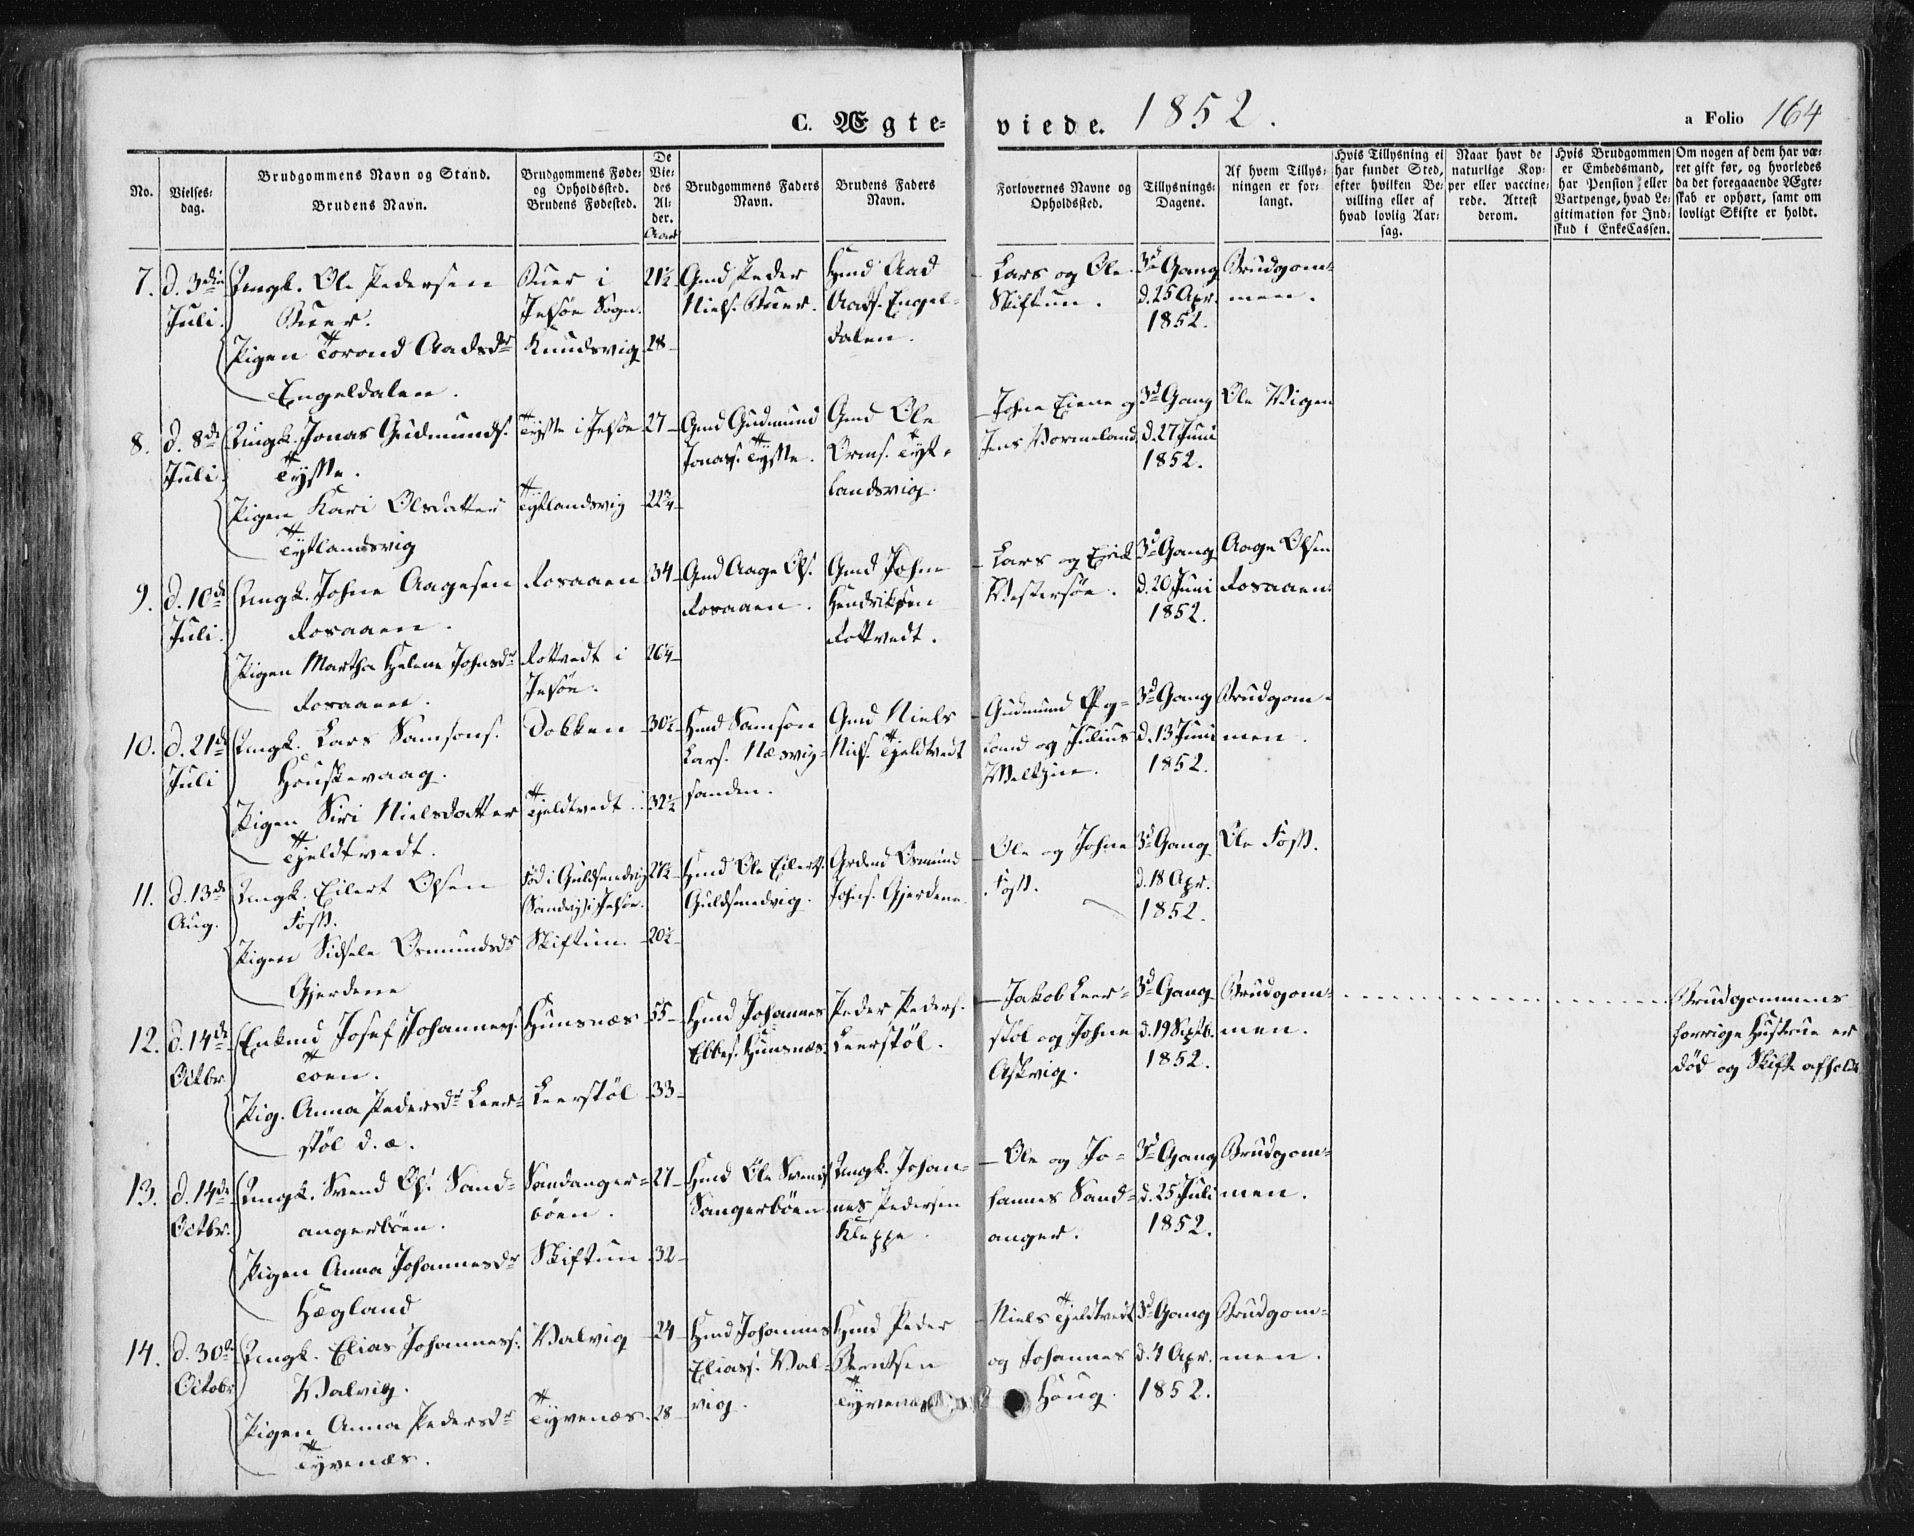 C. Ægte-
viede. 1852.
a Folio 164
No.
Vielses-
dag.
Brudgommens Navn og Stand.
Brudens Navn.
Brudgommens Føde-
og Opholdssted.
Brudens Fødested.
De
Vie-
des
Al-
der.
Aar
Brudgommens Faders
Navn.
Brudens Faders
Navn.
Forlovernes Navne og
Opholdssted.
Tillysnings-
Dagene.
Af hvem Tillys-
ningen er for-
langt.
Hvis Tillysning ei
har fundet Sted,
efter hvilken Be-
villing eller af
hvad lovlig Aar-
sag.
Naar havt de
naturlige Kop-
per eller vaccine-
rede. Attest
derom.
Hvis Brudgommen
er Embedsmand,
har Pension eller
Vartpenge, hvad Le-
gitimation for Ind-
skud i EnkeCassen.
Om nogen af dem har væ-
ret gift før, og hvorledes
da det foregaaende Ægte-
skab er ophørt, samt om
lovligt Skifte er holdt.
7.
d. 3die
Juli.
Ungk. Ole Pedersen
Buer.
Pigen Torond Aadsdr
Engeldalen.
Buer i
Jelsøe Sogn.
Knudsvig
21½
28
Gmd Peder
Niels. Buer.
Hmd Aad
Aads. Engel-
dalen.
Lars og Ole
Skiftun.
3d Gang
d. 25 Apr.
1852.
Brudgom-
men.
8.
d. 8de
Juli.
Ungk. Jonas Gudmunds.
Tysse.
Pigen Kari Olsdatter
Tytlandsvig
Tysse i Jelsøe
Tytlandsvig
27
22¾
Gmd Gudmund
Jonas. Tysse.
Gmd Ole
Orms. Tyt-
landsvig.
Johne Eiene og
Jens Vormeland.
3d Gang
d. 27 Juni
1852.
Ole Vigen
9.
d. 10de
Juli.
Ungk. Johne Aagesen
Fosaaen.
Pigen Martha Helene Johnsdr
Fosaaen.
Fosaaen
Fottvedt i
Jelsøe.
34
20¼
Gmd Aage Ols.
Fosaaen.
Gmd John
Hendriksen
Fottvedt.
Lars og Erick
Vestersøe.
3d Gang
d. 20 Juni
1852.
Aage Olsen
Fosaaen.
10.
d. 21de
Juli
Ungk. Lars Samsons.
Houskevaag.
Pigen Siri Nielsdatter
Tjeldtvedt.
Dokken
Tjeldtvedt.
30½
32½
Hmd Samson
Lars. Næsvig-
sanden.
Gmd Niels
Niels. Tjeldtvedt
Gudmund
land og Julius
3d Gang
d. 13 Juni
1852.
Brudgom-
men.
11.
d. 13de
Aug.
Ungk. Eilert Olsen
Foss.
Pigen Sidsele Osmundsdr
Gjerdene
Fød i Guldsmedvig
Sandvig i Jelsøe.
Skiftun.
20½
Hmd Ole Eilerts.
Guldsmedvig.
Osmund
Johns. Gjerdene.
Ole og Johne
Foss.
3d Gang
d. 18 Apr.
1852.
Ole Foss.
12.
d. 14de
Octbr.
Enkmd Josef Johanness.
Toen.
Pig. Anna Pedersdr Leer-
støl d. æ.
Hunsnæs
Leerstøl
55
33
Hmd Johannes
Ebbes. Hunsnæs.
Peder Peders.
Leerstøl.
Jakob Leer-
støl og Johne
Askvig.
3d Gang
d. 19 Septb.
1852.
Brudgom-
men.
Brudgommens
forrige Hustrue er
død og Skifte afholdt
13.
d. 14de
Octbr.
Ungk. Svend Ols. Sand-
angerbøen.
Pigen Anna Johannesdr
Hægland
Sandanger-
bøen.
Skiftun
27
32
Hmd Ole Svends.
Sangerbøen
Ungk. Johan-
nes Pedersen
Kleppe.
Ole og Jo-
hannes Sand-
anger.
3d Gang
d. 25 Juli
1852.
Brudgom-
men.
14.
d. 30te
Octobr
Ungk. Elias Johanness.
Valvig.
Pigen Anna Pedersdr
Tyvenæs.
Valvig
Tyvenæs.
24
28
Hmd Johannes
Elias. Val-
vig.
Hmd Peder
Berntsen
Tyvenæs
Niels Tjeldtvedt
og Johannes
Houg.
3d Gang
d. 4 Apr.
1852.
Brudgom-
men.